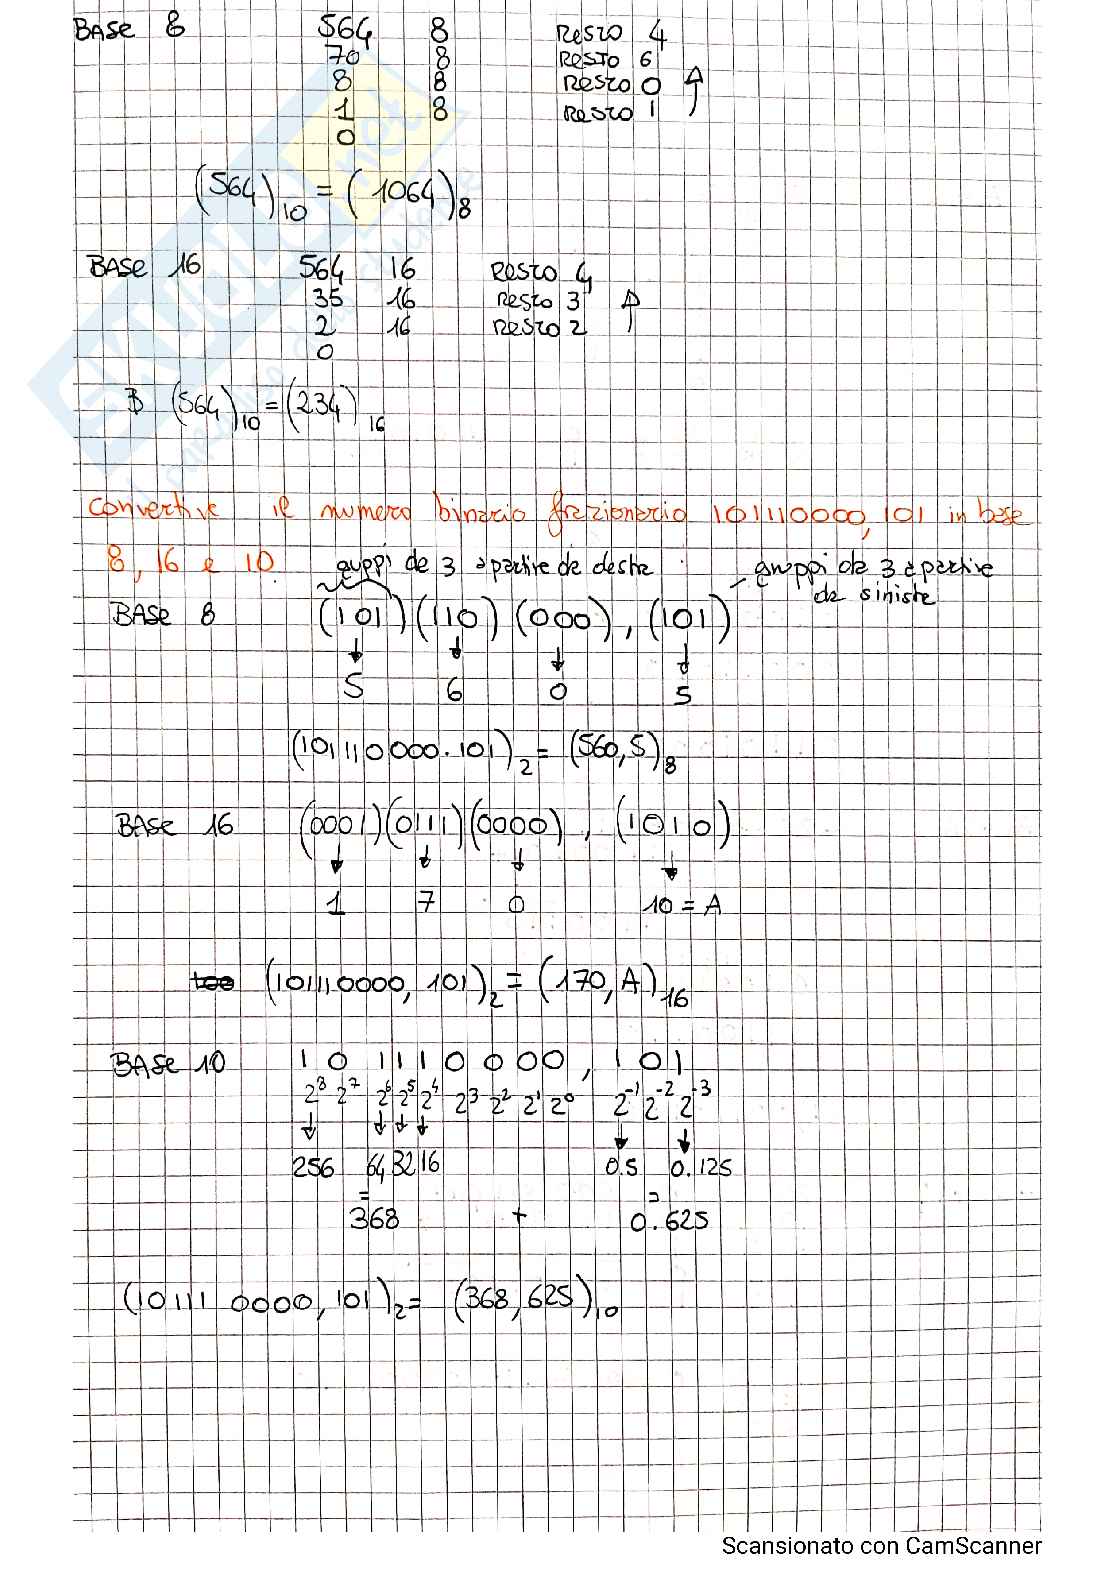 BASE 8 564 8 RESTO 4
70 8 RESTO 6
8 8 RESTO 0
1 8 RESTO 1
0
(564)10 = (1064)8
BASE 16 564 16 RESTO 4
35 16 RESTO 3
2 16 RESTO 2
0
(564)10 = (234)16
convertire il numero binario frazionario 101110000,101 in base
8, 16 e 10
gruppi da 3 a partire da destra
gruppi da 3 a partire
da sinistra
BASE 8 (101)(110)(000),(101)
5 6 0 5
(101110000.101)2 = (560,5)8
BASE 16 (0001)(0111)(0000),(1010)
1 7 0 10 = A
(101110000,101)2 = (170,A)16
BASE 10 1 0 1 1 1 0 0 0 0 , 1 0 1
2^8 2^7 2^6 2^5 2^4 2^3 2^2 2^1 2^0 2^-1 2^-2 2^-3
256 64 32 16 0.5 0.125
= =
368 + 0.625
(101110000,101)2 = (368,625)10
SKUOLA.net
Scansionato con CamScanner